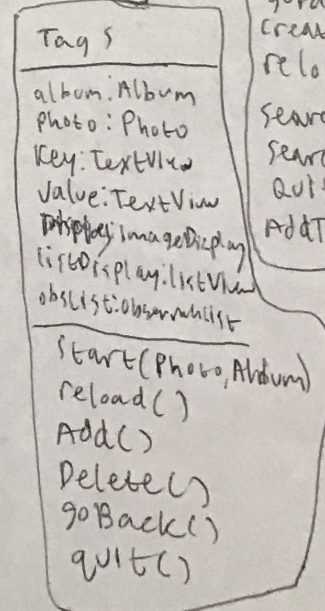 Tags
album:Album
photo:Photo
Key:TextView
Value:TextView
Display:imageDisplay
listDisplay:listView
obsList:observablist
Start(Photo,Album)
reload()
Add()
Delete()
goBack()
quit()
creat
relo
Searc
Sear
Quit
AddT